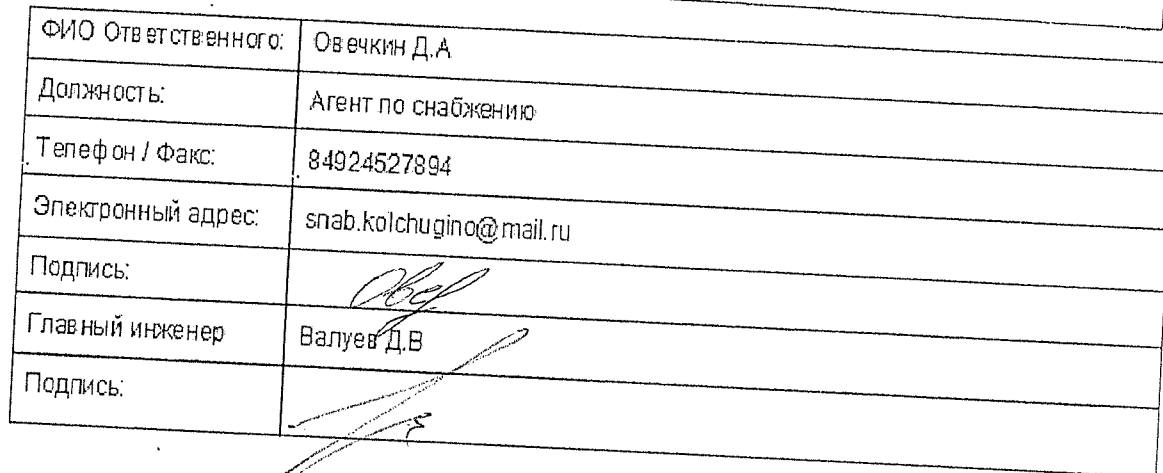 ФИО Ответственного: Овечкин Д.А
Должность: Агент по снабжению
Телефон / Факс: 84924527894
Электронный адрес: snab.kolchugino@mail.ru
Подпись:
Главный инженер Валуев Д.В
Подпись: